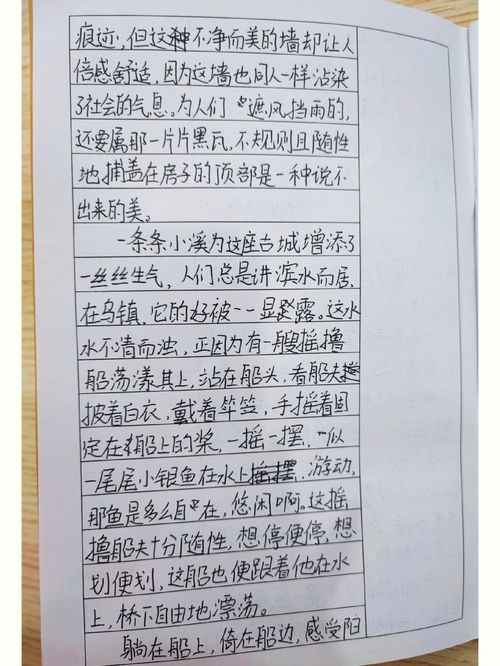 痕迹,但这种不净而美的墙却让人
倍感舒适,因为这墙也同人一样沾染
了社会的气息。为人们“遮风挡雨的,
还要属那一片片黑瓦,不规则且随性
地捕盖在房子的顶部是一种说不
出来的美。
一条条小溪为这座古城增添了
一丝丝生气,人们总是讲滨水而居,
在乌镇,它的好被一一显露。这水
水不清而浊,正因为有一艘摇撸
船荡漾其上,站在船头,看船夫
披着白衣,戴着竿笠,手摇着固
定在船上的桨,一摇一摆,“似
一尾尾小银鱼在水上摇摆,游动,
那鱼是多么自在,悠闲啊。这摇
撸船夫十分随性,想停便停,想
划便划,这船也便跟着他在水
上,桥下自由地漂荡。
躺在船上,倚在船边,感受阳